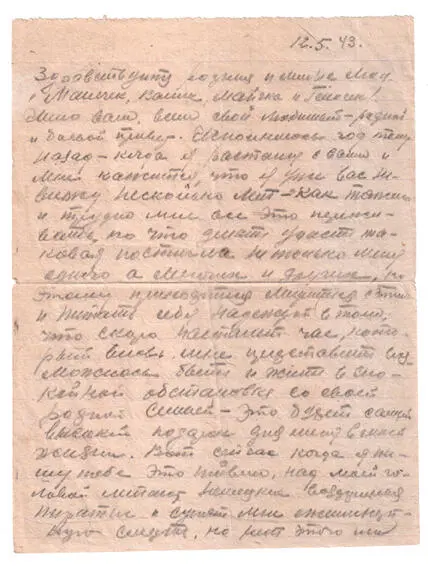 12.5.43.
Здравствуйте родные и милые мои
Манечка, Валик, Маечка и !
Шлю вам, всем свой любимый-родной
и боевой привет. Исполнилось год тому
назад - когда я растался с вами и
мне кажется, что я уже вас не
вижу несколько лет - как тяжело
и трудно мне все это пережи-
вать, но что делать участь та-
ковая постигла не только меня
одного а многих и других, по
этому приходится мириться с этим
и питать себя надеждой в том,
что скоро настанет час, кото-
рый вновь мне предоставит воз
можность быть и жить в спо-
койной обстановке со своей
родной семьей - это будет самый
высокий подарок для меня в моей
жизни. Вот сейчас когда я пи-
шу тебе это письмо, над моей го-
ловой летают немецкие воздушные
пираты и сулят мне ежеминут-
ную смерть, но